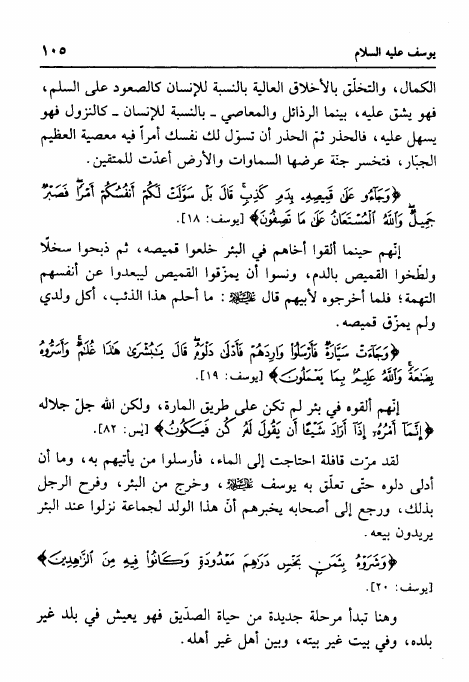 يوسف عليه السلام ١٠٥
الكمال، والتخلّق بالأخلاق العالية بالنسبة للإنسان كالصعود على السلم،
فهو يشق عليه، بينما الرذائل والمعاصي ـ بالنسبة للإنسان ـ كالنزول فهو
يسهل عليه، فالحذر ثمّ الحذر أن تسوّل لك نفسك أمراً فيه معصية العظيم
الجبّار، فتخسر جنّة عرضها السماوات والأرض أعدّت للمتقين.
﴿وَجَآءُو عَلَىٰ قَمِيصِهِۦ بِدَمٍ كَذِبٍۚ قَالَ بَلْ سَوَّلَتْ لَكُمْ أَنفُسُكُمْ أَمْرًاۖ فَصَبْرٌ
جَمِيلٌۖ وَٱللَّهُ ٱلْمُسْتَعَانُ عَلَىٰ مَا تَصِفُونَ﴾ [يوسف: ١٨].
إنّهم حينما ألقوا أخاهم في البئر خلعوا قميصه، ثم ذبحوا سخلًا
ولطّخوا القميص بالدم، ونسوا أن يمزّقوا القميص ليبعدوا عن أنفسهم
التهمة؛ فلما أخرجوه لأبيهم قال ﷺ: ما أحلم هذا الذئب، أكل ولدي
ولم يمزّق قميصه.
﴿وَجَآءَتْ سَيَّارَةٌ فَأَرْسَلُوا۟ وَارِدَهُمْ فَأَدْلَىٰ دَلْوَهُۥۖ قَالَ يَٰبُشْرَىٰ هَٰذَا غُلَٰمٌۚ وَأَسَرُّوهُ
بِضَٰعَةًۚ وَٱللَّهُ عَلِيمٌۢ بِمَا يَعْمَلُونَ﴾ [يوسف: ١٩].
إنّهم ألقوه في بئر لم تكن على طريق المارة، ولكن الله جلّ جلاله
﴿إِنَّمَآ أَمْرُهُۥٓ إِذَآ أَرَادَ شَيْـًٔا أَن يَقُولَ لَهُۥ كُن فَيَكُونُ﴾ [يٰس: ٨٢].
لقد مرّت قافلة احتاجت إلى الماء، فأرسلوا من يأتيهم به، وما أن
أدلى دلوه حتّى تعلّق به يوسف ﷺ، وخرج من البئر، وفرح الرجل
بذلك، ورجع إلى أصحابه يخبرهم أنّ هذا الولد لجماعة نزلوا عند البئر
يريدون بيعه.
﴿وَشَرَوْهُ بِثَمَنٍۭ بَخْسٍ دَرَٰهِمَ مَعْدُودَةٍ وَكَانُوا۟ فِيهِ مِنَ ٱلزَّٰهِدِينَ﴾
[يوسف: ٢٠].
وهنا تبدأ مرحلة جديدة من حياة الصدّيق فهو يعيش في بلد غير
بلده، وفي بيت غير بيته، وبين أهل غير أهله.